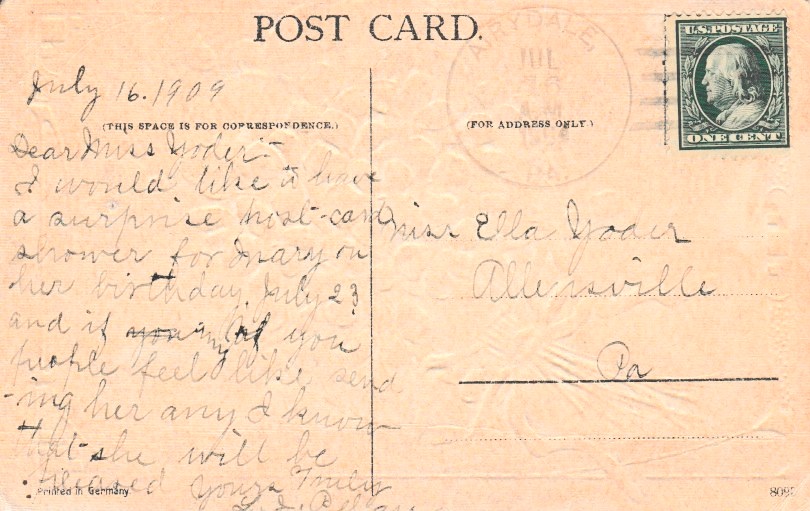 POST CARD.
AIRYDALE,
JUL
A.M.
PA.
U.S.POSTAGE
ONE CENT
July 16. 1909
(THIS SPACE IS FOR CORRESPONDENCE.)
(FOR ADDRESS ONLY.)
Dear Miss Yoder:-
I would like to have
a surprise post-card
shower for Mary on
her birthday, July 23
and if you any of you
people feel like send
-ing her any I know
that she will be
pleased Yours Truly
Miss Ella Yoder
Allensville
Pa
Printed in Germany
809